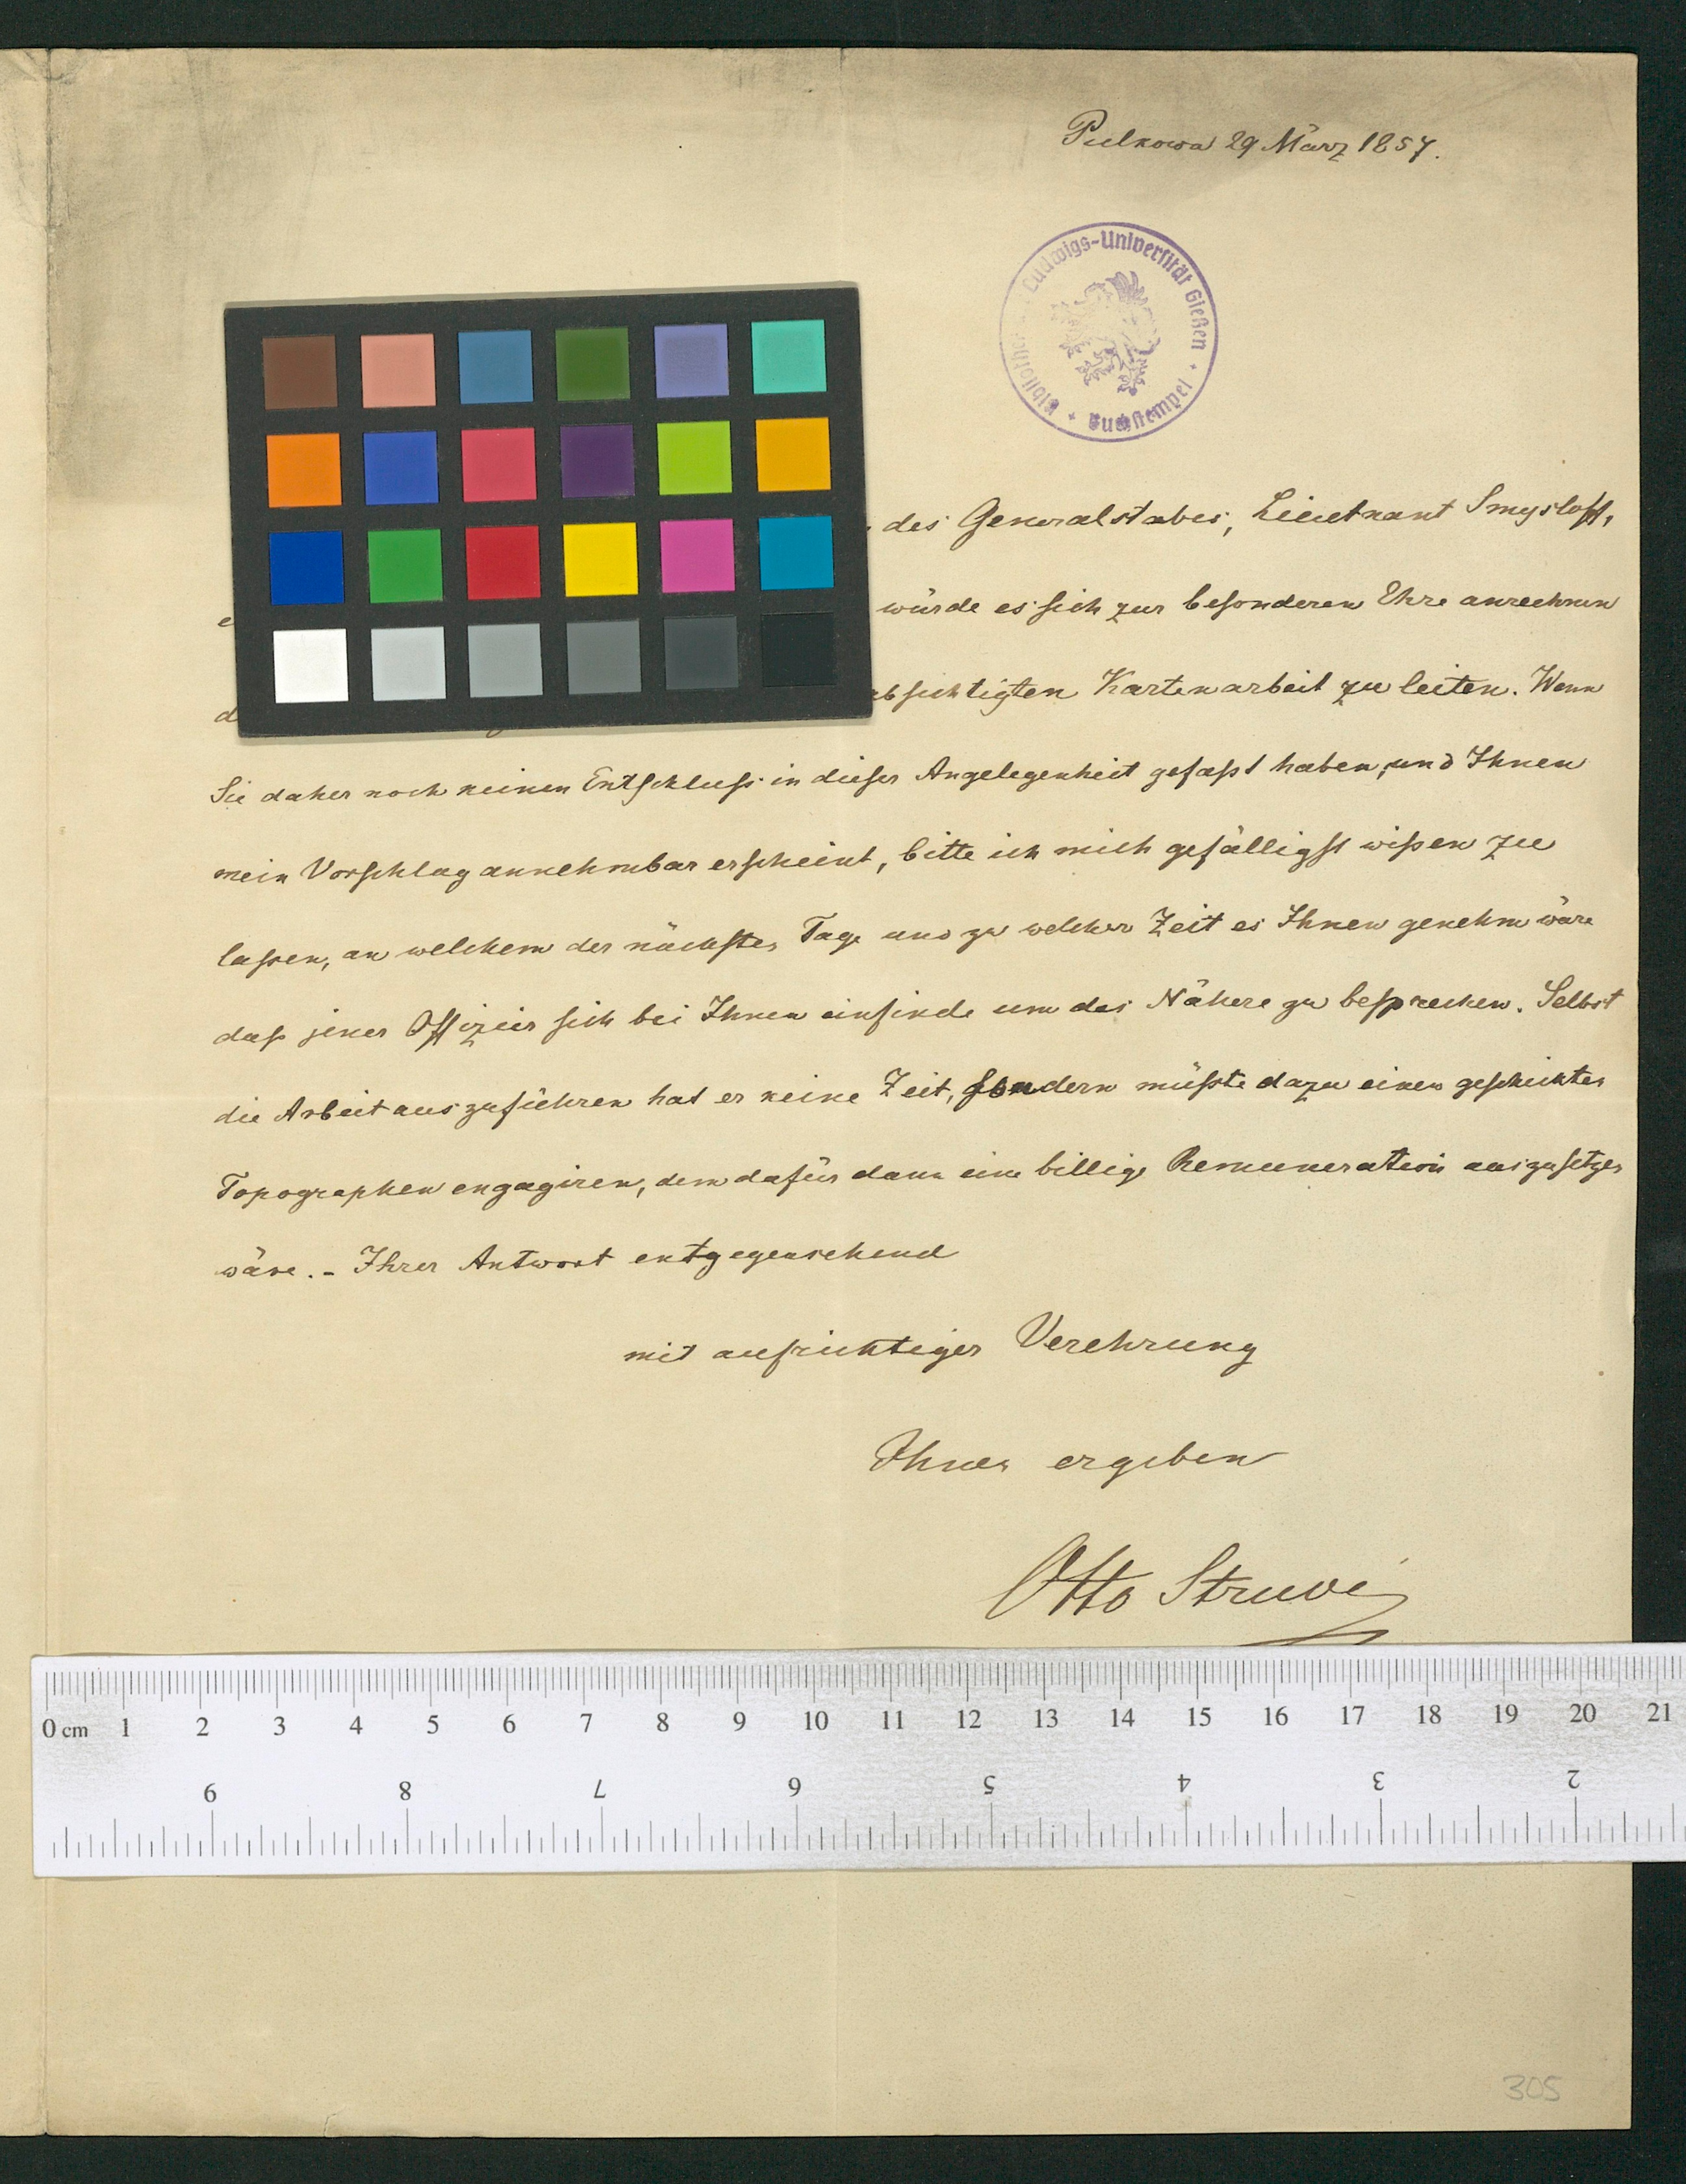 Pulkowa 29 März 1857.
Ludwigs-Universität Gießen
Bibliothek
Buchstempel
des Generalstabes, Lieutnant Smysloff,
würde es sich zur besonderen Ehre anrechnen
absichtigten Kartenarbeit zu leiten. Wenn
Sie daher noch keinen Entschluss in dieser Angelegenheit gefaßt haben, und Ihnen
mein Vorschlag annehmbar erscheint, bitte ich mich gefälligst wißen zu
laßen, an welchem der nächsten Tage und zu welcher Zeit es Ihnen genehm wäre
daß jener Offizier sich bei Ihnen einfinde um das Nähere zu besprechen. Selbst
die Arbeit auszuführen hat er keine Zeit, sondern müßte dazu einen geschickten
Topographen engagiren, dem dafür dann eine billige Remuneration auszusetzen
wäre. - Ihrer Antwort entgegensehend
mit aufrichtiger Verehrung
Ihnen ergeben
Otto Struve
0 cm 1 2 3 4 5 6 7 8 9 10 11 12 13 14 15 16 17 18 19 20 21
9 8 7 6 5 4 3 2
305